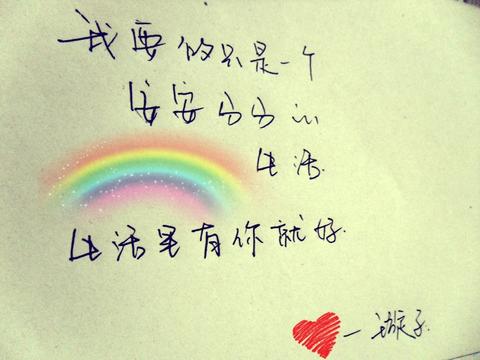 我要的只是一个
安安分分的
生活.
生活里有你就好.
—璇子.